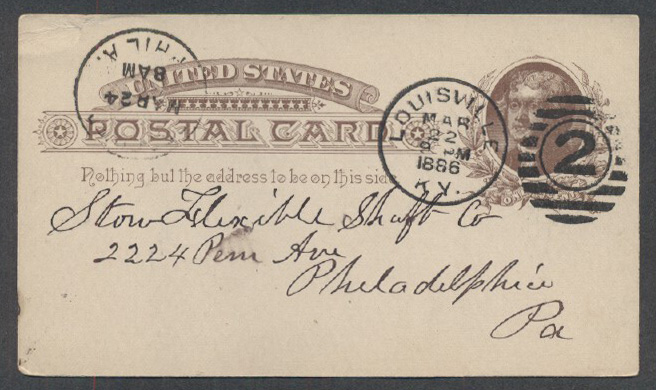 PHILA.
MAR 24
8 AM
UNITED STATES
POSTAL CARD
Nothing but the address to be on this side.
LOUISVILLE
MAR
22
PM
1886
KY.
2
Stow Flexible Shaft Co
2224 Penn Ave
Philadelphia
Pa